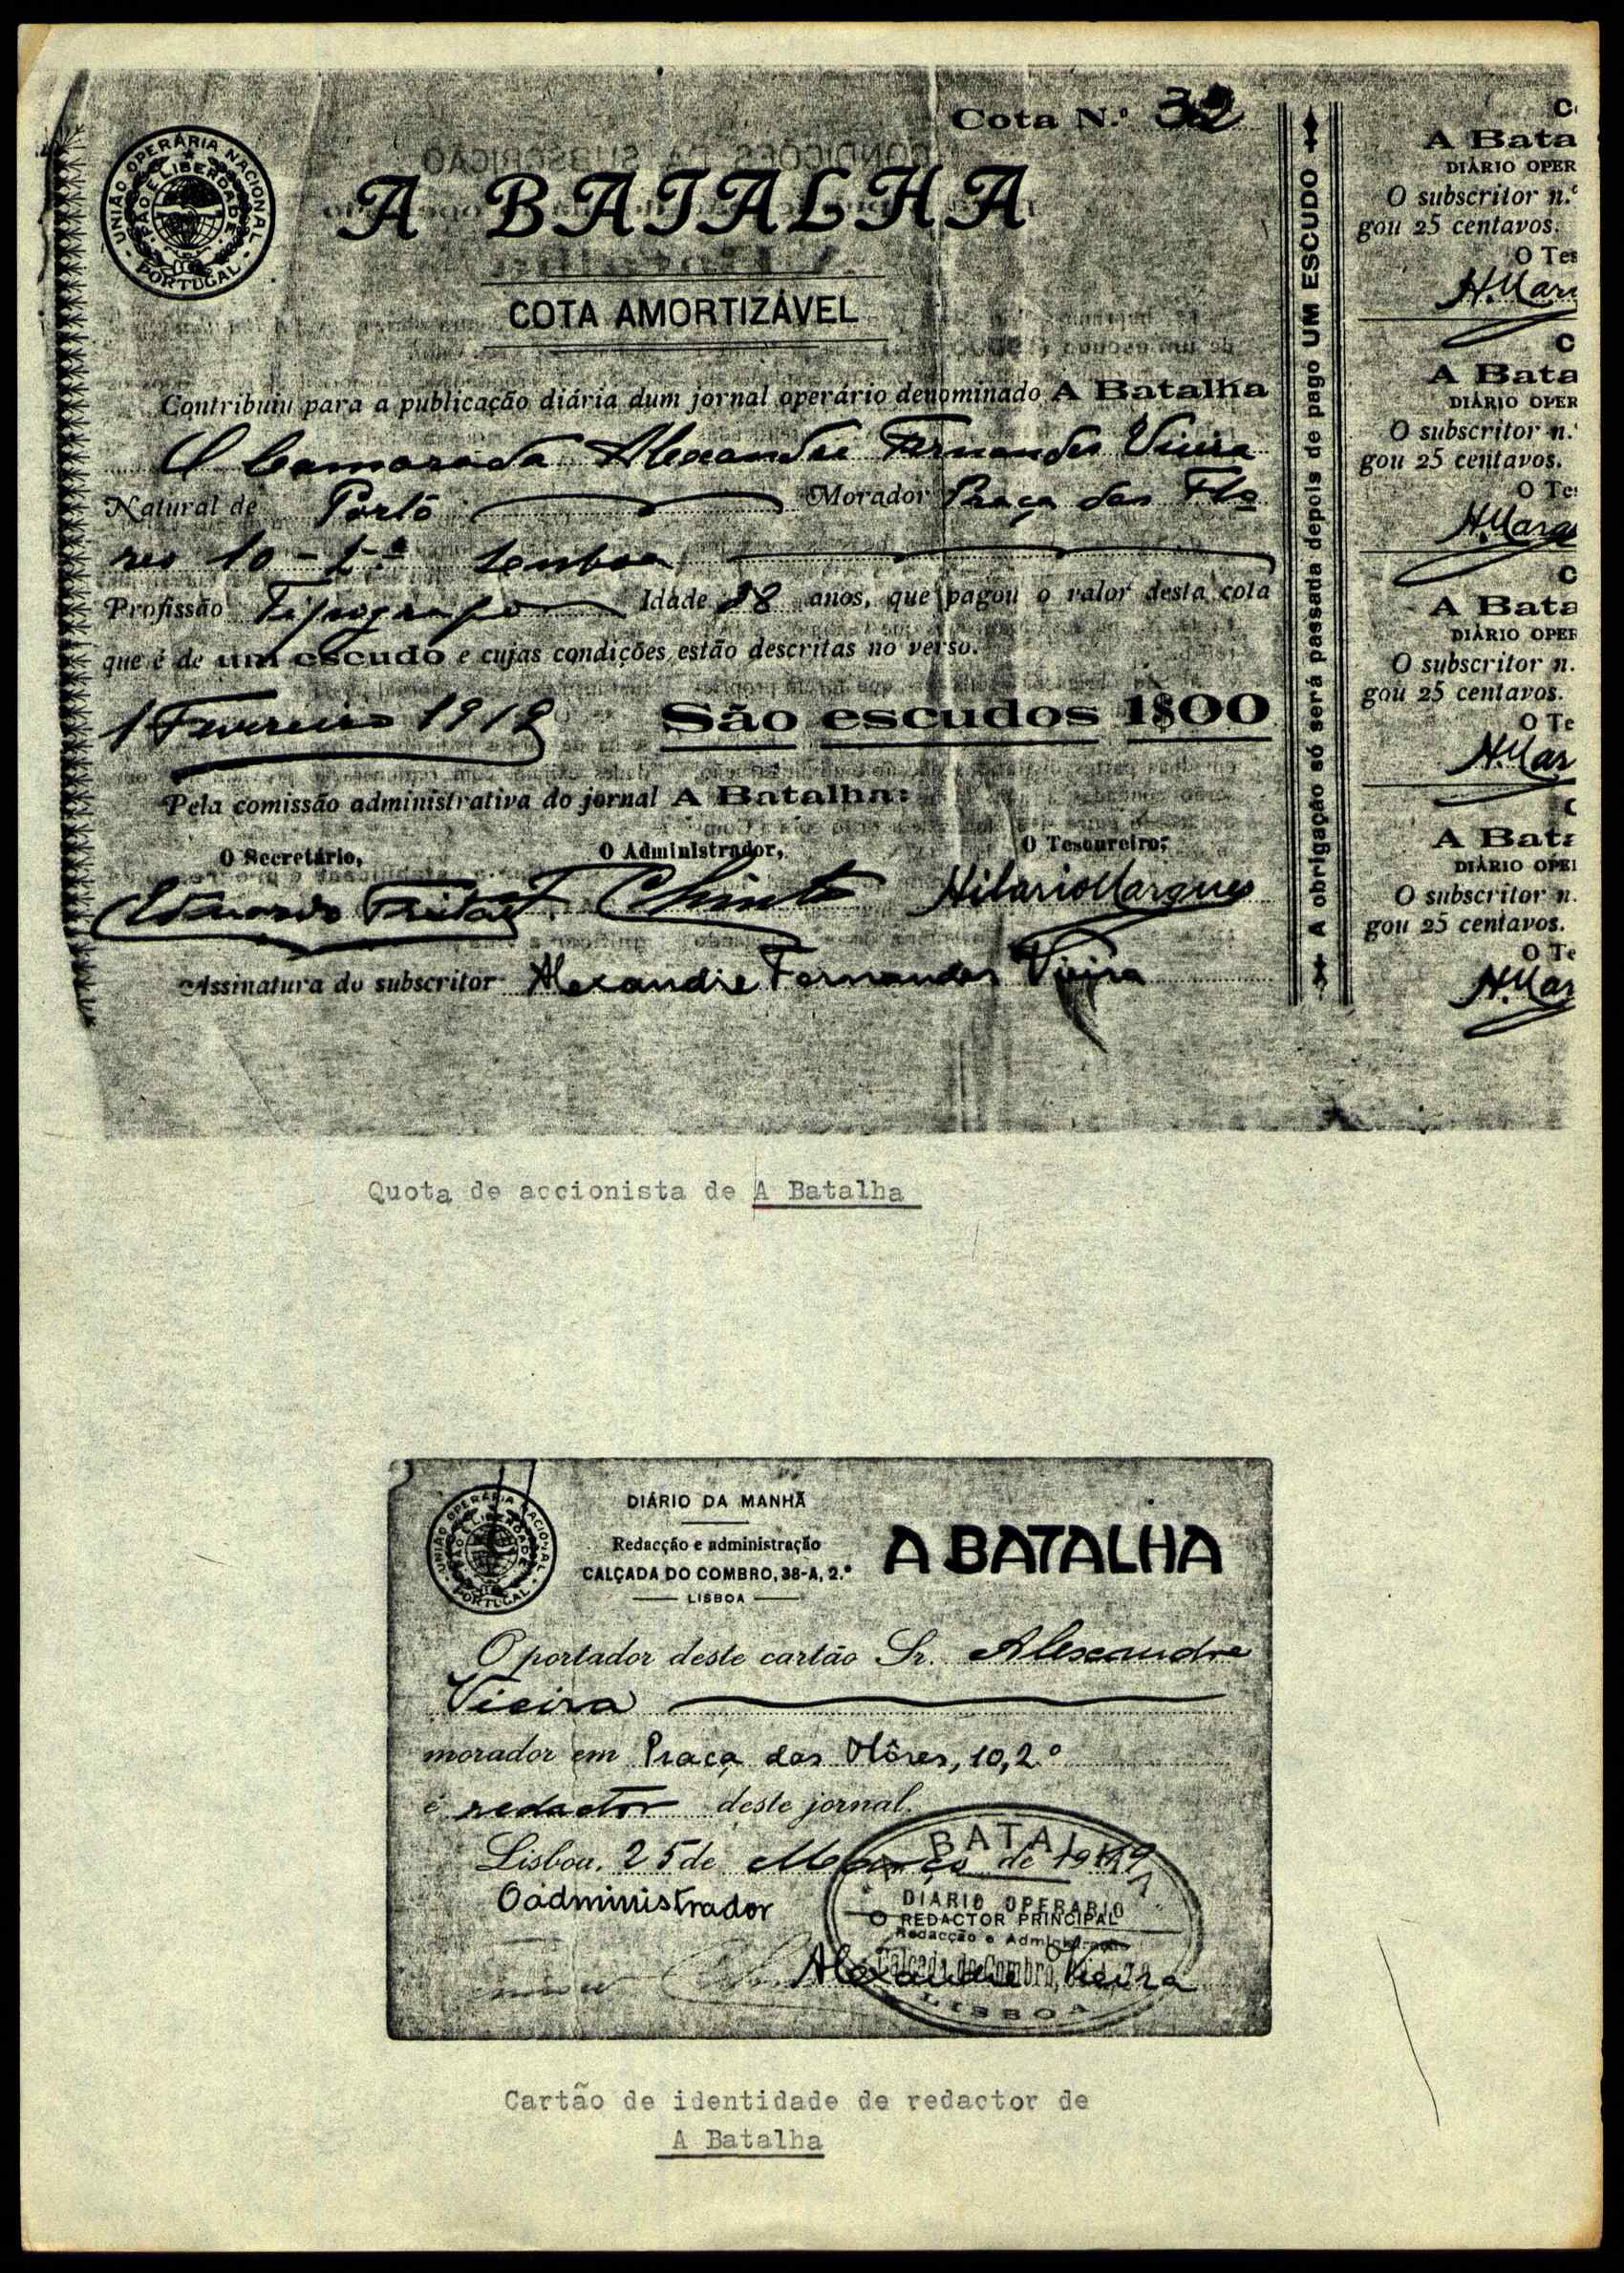 Cota N.º 32
UNIÃO OPERÁRIA NACIONAL
PÃO E LIBERDADE
PORTUGAL
A BATALHA
COTA AMORTIZÁVEL
Contribuiu para a publicação diária dum jornal operário denominado A Batalha
O Camarada Alexandre Fernandes Vieira
Natural de Porto Morador Praça das Flo
res 10-2.º Lisboa
Profissão Tipografo Idade 38 anos, que pagou o valor desta cota
que é de um escudo e cujas condições estão descritas no verso.
1 Fevereiro 1919 São escudos 1$00
Pela comissão administrativa do jornal A Batalha:
O Secretário, O Administrador, O Tesoureiro,
Eduardo Freitas Hilario Marques
Assinatura do subscritor Alexandre Fernandes Vieira
A obrigação só será passada depois de pago UM ESCUDO
C
A Bata
DIÁRIO OPER
O subscritor n.º
gou 25 centavos.
O Tes
H. Mar
C
A Bata
DIÁRIO OPER
O subscritor n.º
gou 25 centavos.
O Te
H. Marq
C
A Bata
DIÁRIO OPER
O subscritor n.
gou 25 centavos.
O Te
H. Mar
C
A Bata
DIÁRIO OPE
O subscritor n.
gou 25 centavos.
O Te
H. Mar
Quota de accionista de A Batalha
UNIÃO OPERÁRIA NACIONAL
PÃO E LIBERDADE
PORTUGAL
DIÁRIO DA MANHÃ
Redacção e administração
CALÇADA DO COMBRO, 38-A, 2.º
LISBOA
A BATALHA
O portador deste cartão Sr. Alexandre
Vieira
morador em Praça das Flôres, 10, 2.º
é redactor deste jornal.
Lisboa, 25 de Março de 1919
O administrador
A BATALHA
DIARIO OPERARIO
O REDACTOR PRINCIPAL
Redacção e Administração
Calçada do Combro, 38-A, 2.º
LISBOA
Alexandre Vieira
Cartão de identidade de redactor de
A Batalha